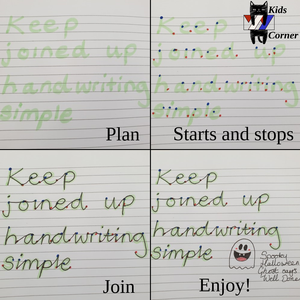 Keep
joined up
handwriting
simple
Plan
Kids
Corner
Keep
joined up
handwriting
simple
Starts and stops
Keep
joined up
handwriting
simple
Join
Keep
joined up
handwriting
simple
Spooky
Halloween
Ghost says
Well Done
Enjoy!